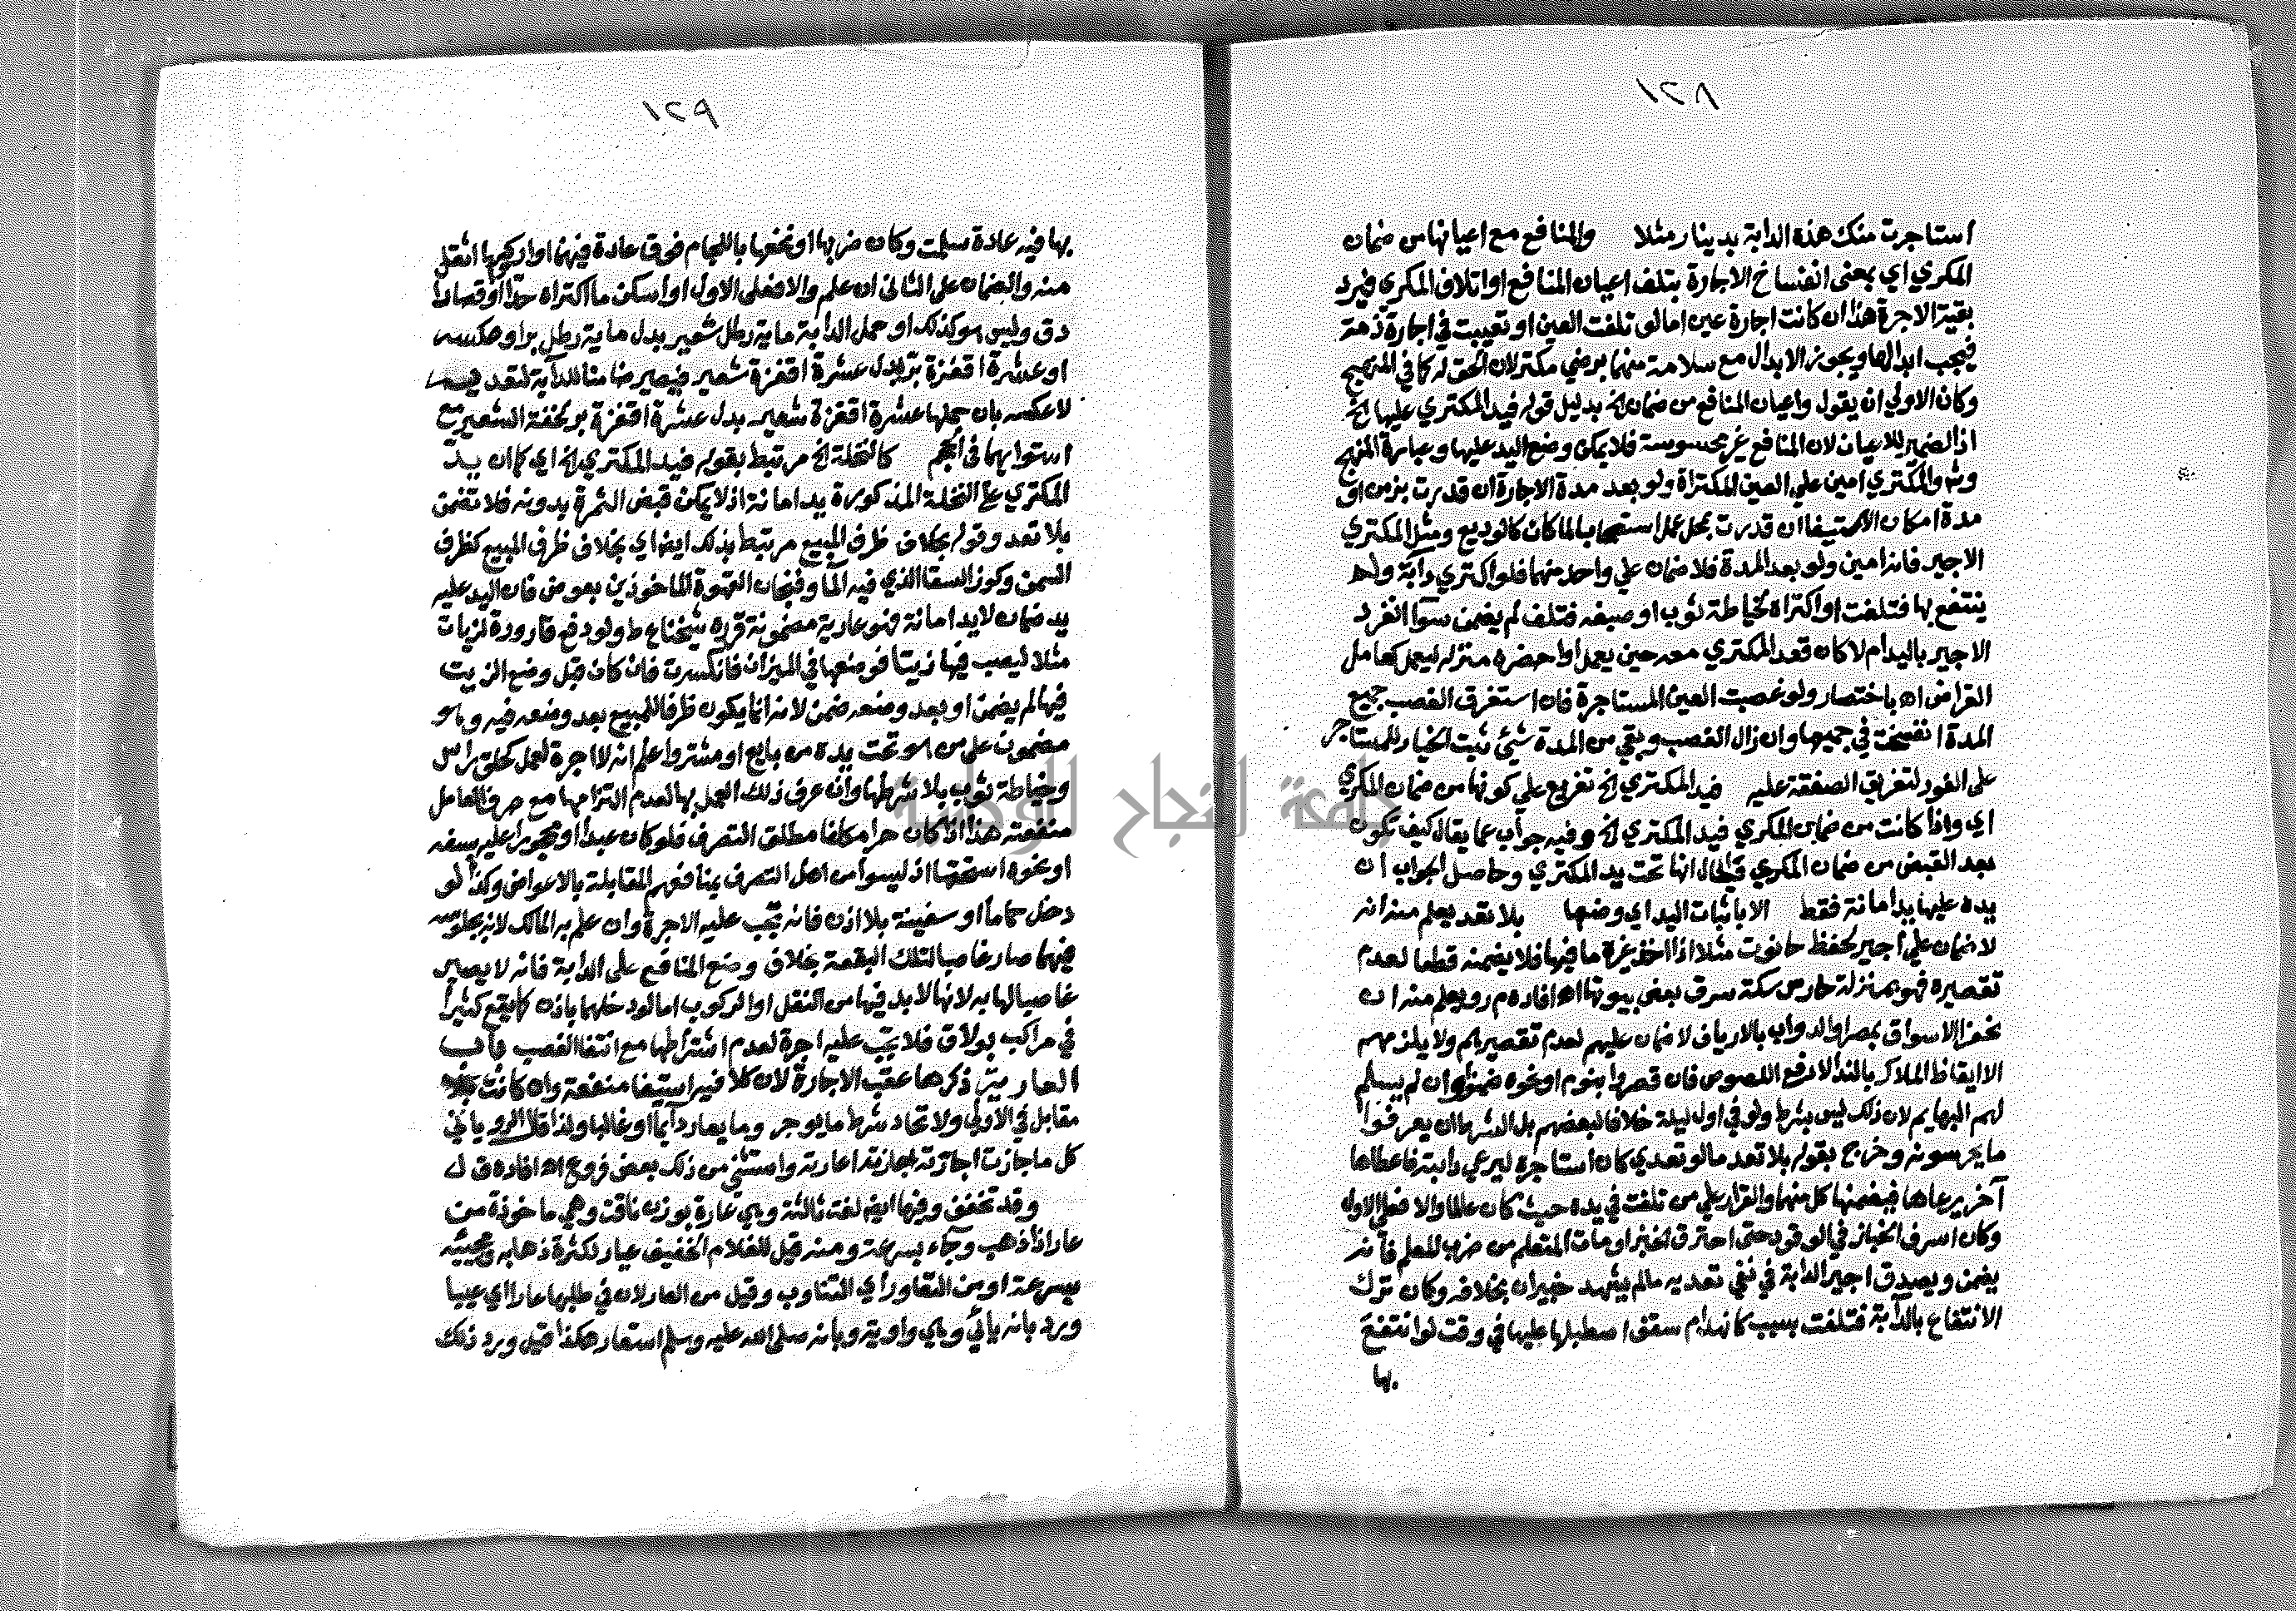 ١٢٨
استاجرت منك هذه الدابة بدينار مثلا والمنافع مع اعيانها من ضمان
المكري اي بمعنى انفساخ الاجارة بتلف اعيان المنافع او اتلاف المكري فيرد
بقية الاجرة هذا ان كانت اجارة عين اما لو تلفت العين او تعيبت في اجارة ذمة
فيجب ابدالها ويجوز الابدال مع سلامة منهما برضي مكتر لان الحق له كما في المنهج
وكان الاولي ان يقول واعيان المنافع من ضمان الخ بدليل قوله فيد المكتري عليها الخ
اذ الضمير للاعيان لان المنافع غير محسوسة فلا يمكن وضع اليد عليها وعبارة المنهج
وشـ والمكتري امين علي العين المكتراة ولو بعد مدة الاجارة ان قدرت بزمن او
مدة امكان الاستيفا ان قدرت بمحل عمل استصحابا لما كان كالوديع ومثل المكتري
الاجير فانه امين ولو بعد المدة فلا ضمان علي واحد منهما فلو اكتري دابة ولم
ينتفع بها فتلفت او اكتراه لخياطة ثوب او صبغه فتلف لم يضمن سوآ انفرد
الاجير باليد ام لا كان قعد المكتري معه حين يعمل او احضره منزله ليعمل كعامل
القراض اه باختصار ولو غصبت العين المستاجرة فان استغرق الغصب جميع
المدة انفسخت في جميعها وان زال الغصب وبقي من المدة شئ ثبت الخيار للمستاجر
على الفور لتفريق الصفقة عليه فيد المكتري الخ تفريع علي كونها من ضمان المكري
اي واذا كانت من ضمان المكري فيد المكتري الخ وفيه جواب عما يقال كيف تكون
بعد القبض من ضمان المكري والحال انها تحت يد المكتري وحاصل الجواب ان
يده عليها يد امانة فقط الا باثبات اليد اي وضعها بلا تعد يعلم منه انه
لا ضمان علي اجير لحفظ حانوت مثلا اذا اخذ غيره ما فيها فلا يضمنه قطعا لعدم
تقصيره فهو بمنزلة حارس سكة سرق بعض بيوتها اه افاده م ر ويعلم منه ان
خفرا الاسواق بمصر والدواب بالارياف لا ضمان عليهم لعدم تقصيرهم ولا يلزمهم
الا ايقاظ الملاك بالندا لا دفع اللصوص فان قصروا بنوم او نحوه ضمنوا وان لم يسلم
لهم البهايم لان ذلك ليس بشرط ولو في اول ليلة خلافا لبعضهم بل الشرط ان يعرفوا
ما يحرسونه وخرج بقوله بلا تعد ما لو تعدي كان استاجره ليرعي دابته فاعطاها
آخر يرعاها فيضمنها كل منهما والقرار علي من تلفت في يده حيث كان عالما والا فعلي الاول
وكان اسرف الخباز في الوقود حتى احترق الخبز او مات المتعلم من ضرب المعلم فانه
يضمن ويصدق اجير الدابة في نفي تعديه ما لم يشهد خبيران بخلافه وكان ترك
الانتفاع بالدابة فتلفت بسبب كانهدام سقف اصطبلها عليها في وقت لو انتفع
بها
١٢٩
بها فيه عادة سلمت وكان ضربها او نخعها باللجام فوق عادة فيهما او اركبها اثقل
منه والضمان على الثاني ان علم والا فعلى الاول او اسكن ما اكتراه حدادا او قصارا
دق وليس هو كذلك او حمل الدابة ماية رطل شعير بدل ماية رطل برا وعكسه
او عشرة اقفزة بر بدل عشرة اقفزة شعير فيصير ضامنا للدابة لتعديه
لا عكسه بان حملها عشرة اقفزة شعير بدل عشرة اقفزة بر لخفة الشعير مع
استوايهما في الحجم كالنخلة الخ مرتبط بقوله فيد المكتري الخ اي كما ان يد
المكتري علي النخلة المذكورة يد امانة اذ لا يمكن قبض الثمرة بدونه فلا تضمن
بلا تعد وقوله بخلاف ظرف المبيع مرتبط بذلك ايضا اي بخلاف ظرف المبيع كظرف
السمن وكوز السقا الذي فيه الما وفنجان القهوة الماخوذين بعوض فان اليد عليه
يد ضمان لا يد امانة فهو عارية مضمونة قرره شيخنا ع ط ولو دفع قارورة لزيات
مثلا ليصب فيها زيتا فوضعها في الميزان فانكسرت فان كان قبل وضع الزيت
فيها لم يضمن او بعد وضعه ضمن لانه انما يكون ظرفا للمبيع بعد وضعه فيه وهو
مضمون على من هو تحت يده من بايع او مشتر واعلم انه لا اجرة لعمل كحلق راس
وخياطة ثوب بلا شرطها وان عرف ذلك العمل بها لعدم التزامها مع صرف العامل
منفعته هذا اذا كان حرا مكلفا مطلق التصرف فلو كان عبدا او محجورا عليه بسفه
او نحوه استحقها اذ ليسوا من اهل التصرف بمنافعهم المقابلة بالاعواض وكذا لو
دخل حماما او سفينة بلا اذن فانه تجب عليه الاجرة وان علم به المالك لانه بجلوسه
فيهما صار غاصبا لتلك البقعة بخلاف وضع المنافع على الدابة فانه لا يصير
غاصبا لها به لانها لا بد فيها من النقل او الركوب اما لو دخلهما باذن كما يقع كثيرا
في مراكب بولاق فلا تجب عليه اجرة لعدم اشتراطها مع انتفا الغصب باب
العارية ذكرها عقب الاجارة لان كلا فيه استيفا منفعة وان كانت بلا
مقابل في الاولي ولاتحاد شرط ما يوجر وما يعار دايما او غالبا ولذا قال الروياني
كل ما جازت اجارته جازت اعارته واستثني من ذلك بعض فروع اه افاده ق ل
وقد تخفف وفيها ايض لغة ثالثة وهي عارة بوزن ناقة وهي ماخوذة من
عار اذا ذهب وجاء بسرعة ومنه قيل للغلام الخفيف عيار لكثرة ذهابه ومجيئه
بسرعة او من التعاور اي التناوب وقيل من العار لان في طلبها عارا اي عيبا
ورد بانه يائي وهي واوية وبانه صلى الله عليه وسلم استعار هكذا قيل ورد ذلك
جامعة النجاح الوطنية